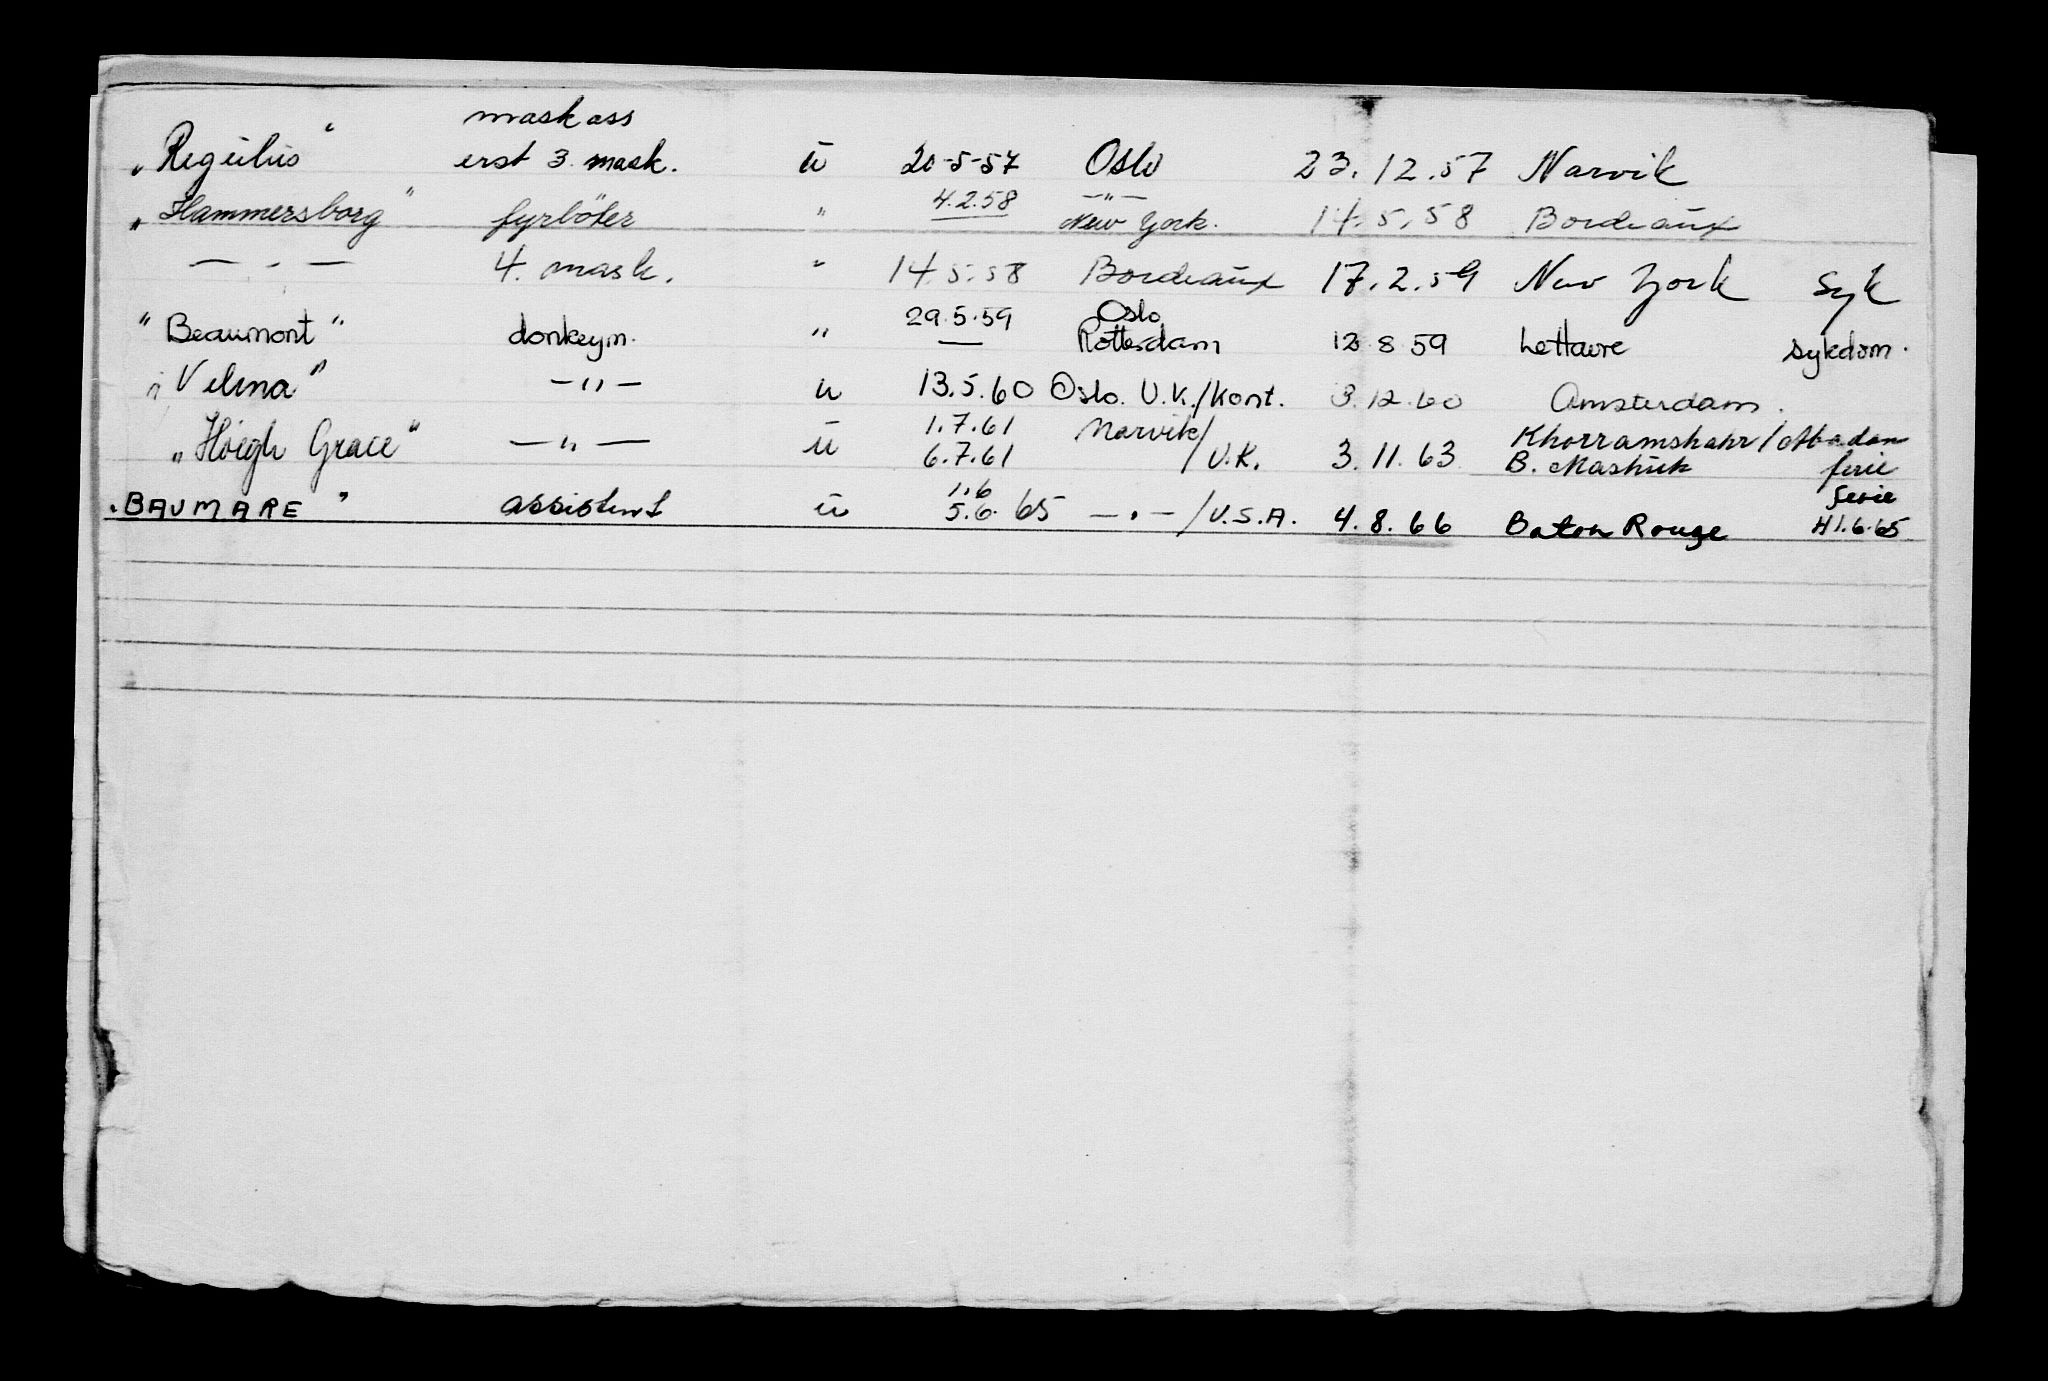 mask ass
„Regulus“ erst 3. mask. u 20-5-57 Oslo 23.12.57 Narvik
„Hammersborg“ fyrböter " 4.2.58 —"— New York. 14.5.58 Bordeaux
— " — 4. mask. " 14.5.58 Bordeaux 17.2.59 New York syk
"Beaumont" donkeym. " 29.5.59 — Oslo Rotterdam 12 8 59 LeHavre sykdom.
"Velma" —"— u 13.5.60 Oslo. U.K./kont. 3.12.60 Amsterdam.
„Höegh Grace“ —"— u 1.7.61 Narvik/ Khorramshahr/Abadan
6.7.61 /U.K. 3.11.63 B. Mashuk ferie
1.6 ferie
"BAUMARE" assistent u 5.6.65 —"—/U.S.A. 4.8.66 Baton Rouge H 1.6.65